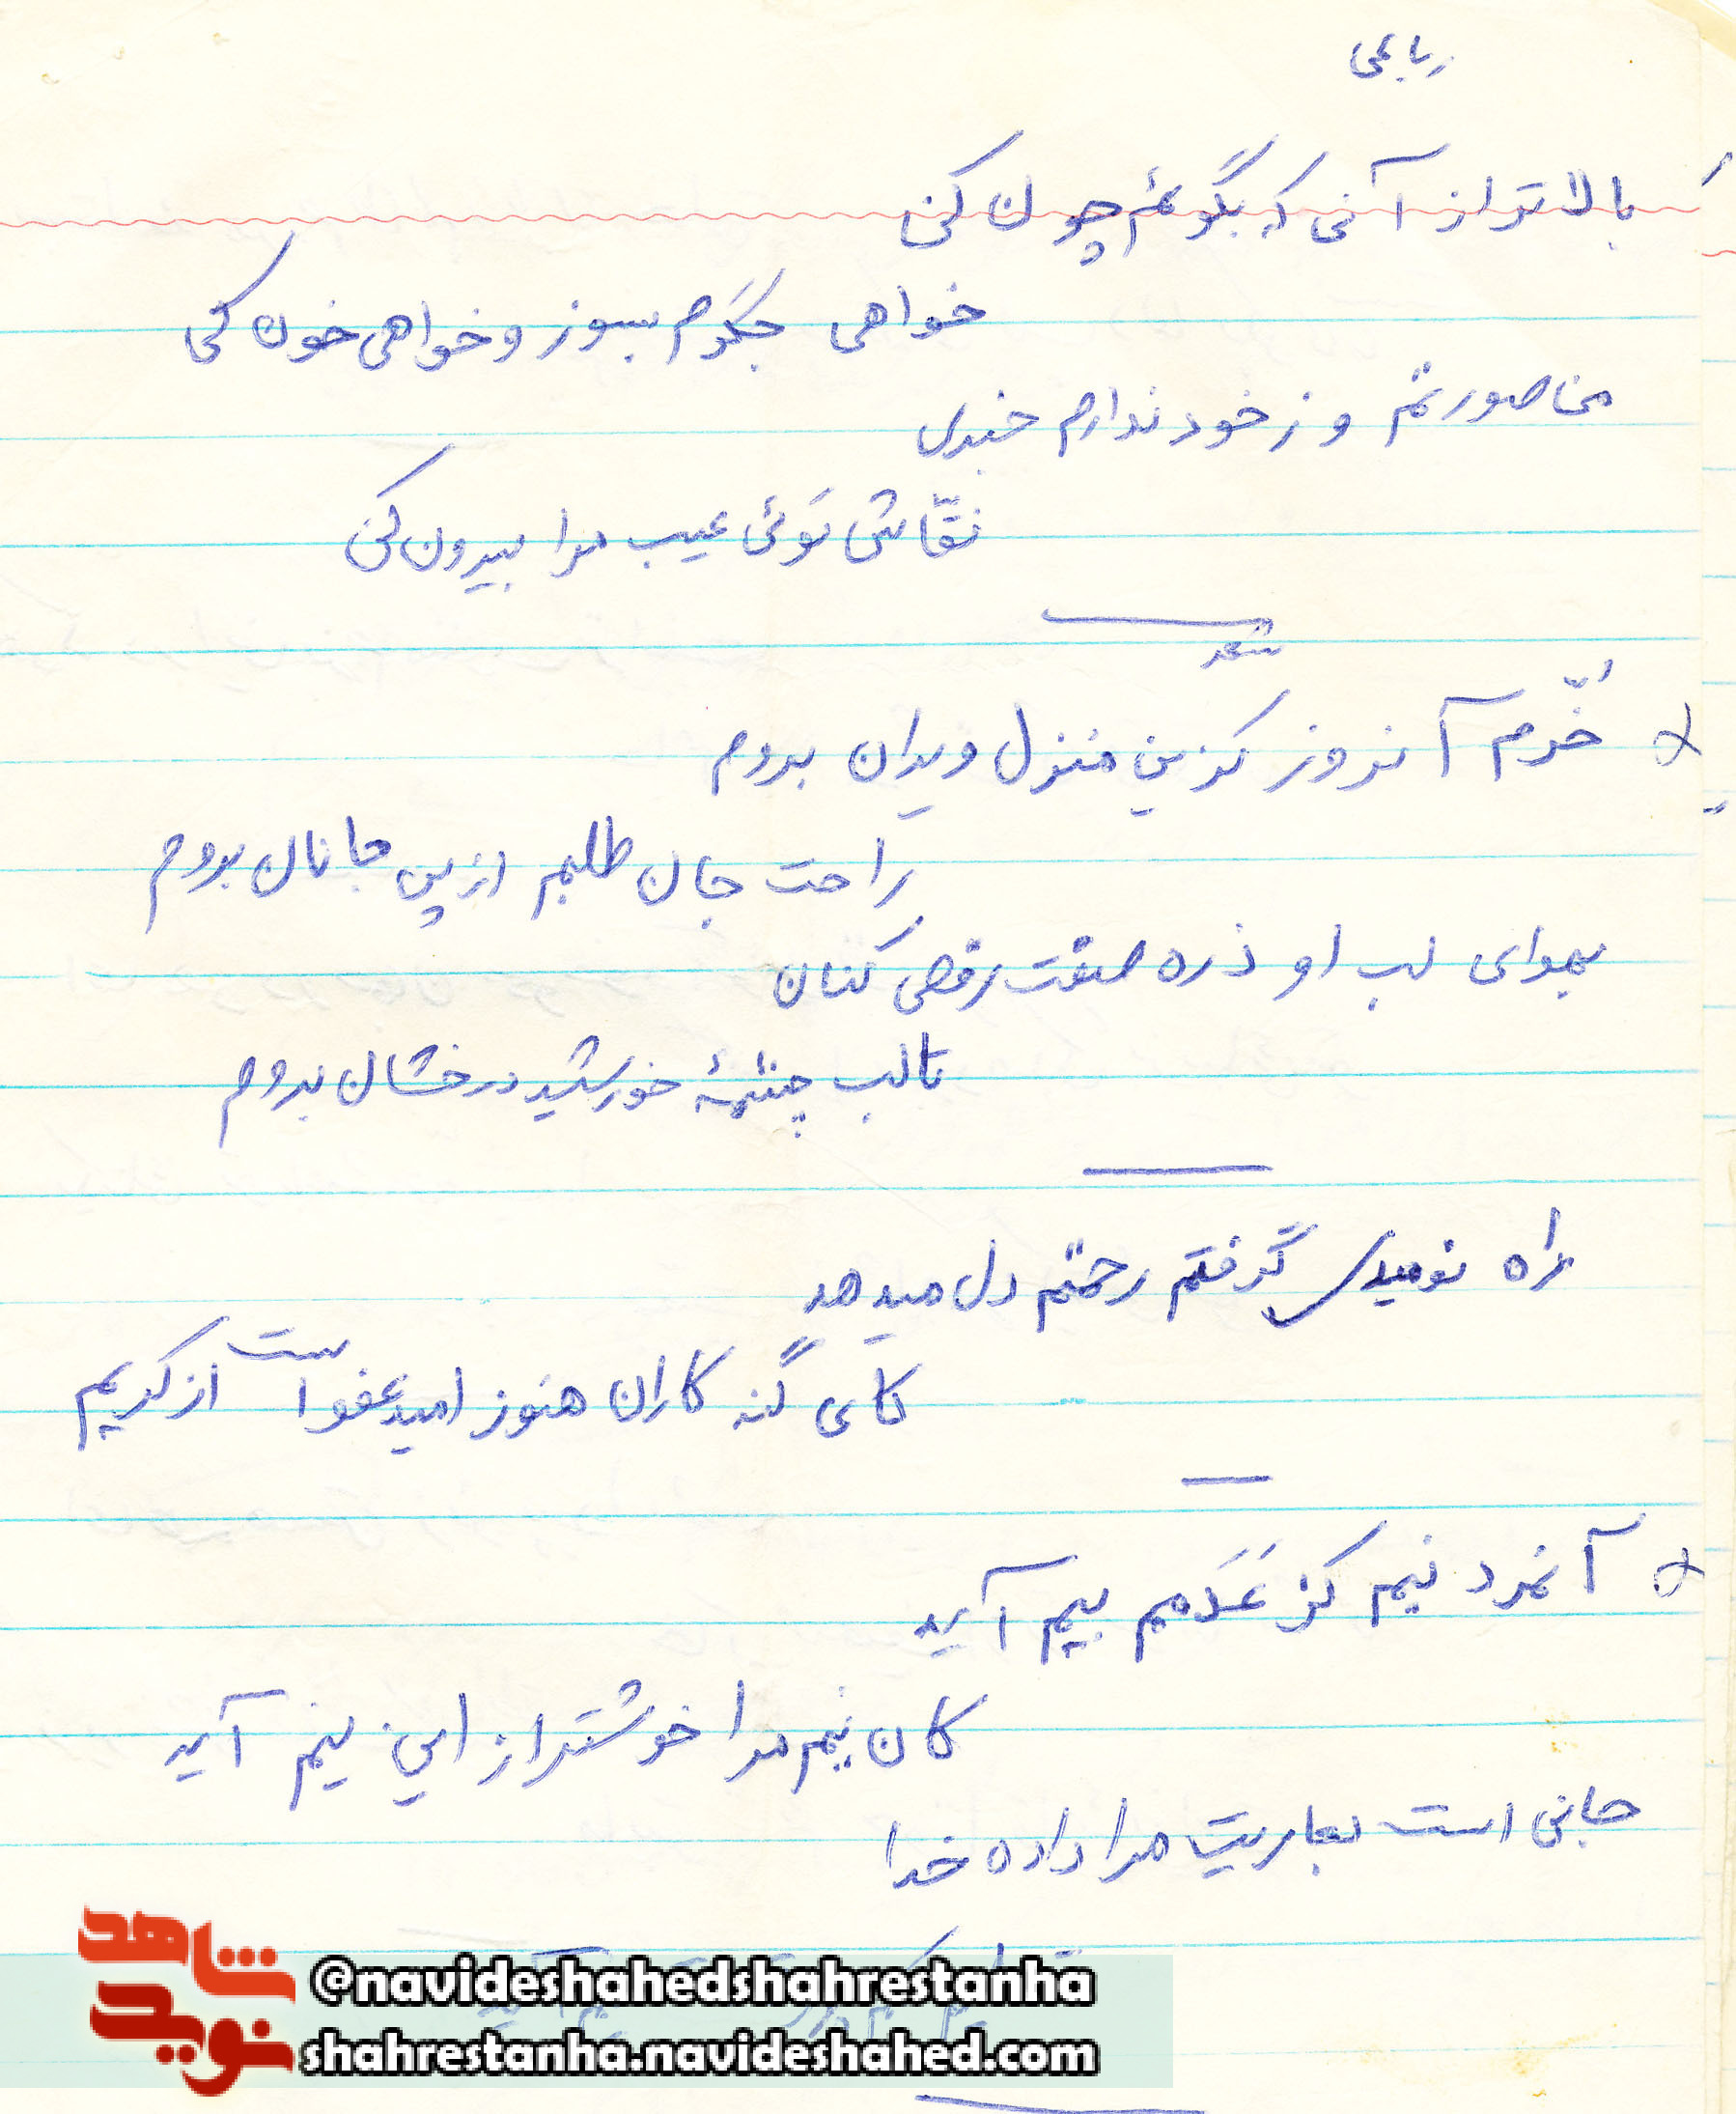 رباعی
بالاتر از آنی که بگویم چون کن
خواهی جگرم بسوز و خواهی خون کن
من صورتم و ز خود ندارم خبری
نقّاش توئی عیب مرا بیرون کن
شعر
خُرّم آنروز کزین منزل ویران بروم
راحت جان طلبم از پی جانان بروم
بهوای لب او ذره صفت رقص کنان
تا لب چشمهٔ خورشید درخشان بروم
راه نومیدی گرفتم رحمتم دل میدهد
کای گنه کاران هنوز امید عفو است از کریم
آنمرد نیم کز عَدَمم بیم آید
کان نیم مرا خوشتر از این نیم آید
جانی است بعاریت مرا داده خدا
شاهد
نوید
@navideshahedshahrestanha
shahrestanha.navideshahed.com